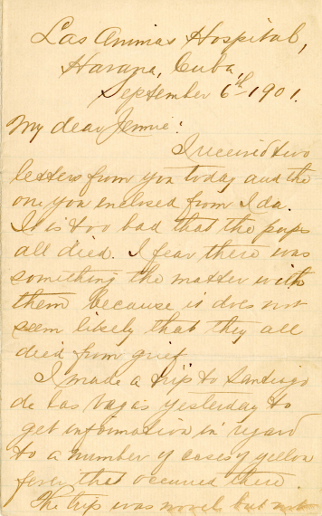 Las Animas Hospital,
Havana, Cuba,
September 6th 1901.
My dear Jennie:
I received two
letters from you today and the
one you enclosed from Ida.
It is too bad that the pups
all died. I fear there was
something the matter with
them because is does not
seem likely that they all
died from grief
I made a trip to Santiago
de las Vegas yesterday to
get information in regard
to a number of cases of yellow
fever that occured there.
The trip was novel but not